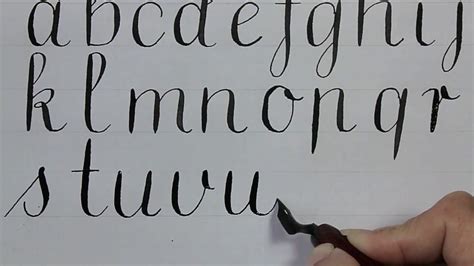 a b c d e f g h i j
k l m n o p q r
s t u v u